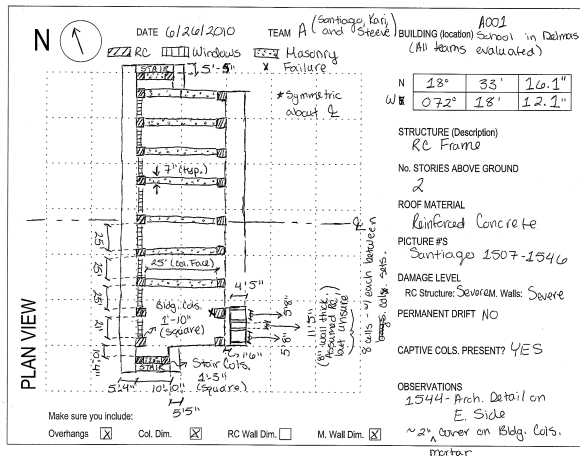 N
DATE 6/26/2010
TEAM A (Santiago, Kari, and Steeve)
BUILDING (location) A001 School in Delmas
(All teams evaluated)
RC Windows Masonry
x Failure
STAIR
5'-5"
*Symmetric
about ℄
N 18° 33' 16.1"
W 072° 18' 12.1"
STRUCTURE (Description)
RC Frame
No. STORIES ABOVE GROUND
2
ROOF MATERIAL
Reinforced Concrete
PICTURE #'S
Santiago 1507-1546
DAMAGE LEVEL
RC Structure: Severe M. Walls: Severe
PERMANENT DRIFT NO
CAPTIVE COLS. PRESENT? YES
OBSERVATIONS
1544-Arch. Detail on
E. Side
~2" mortar cover on Bldg. Cols.
7" (typ.)
℄
25'
25'
25'
21'
10'4"
25' (Col. Face)
4'5"
Bldg. Cols.
1'-10"
(square)
5'8"
5'8"
11'5"
(8" wall thick,
Assumed RC,
but unsure)
each between
cols. sets.
1'6"
Stair Cols.
1'-3"
(square)
STAIR
5'4" 10'0"
5'5"
PLAN VIEW
Make sure you include:
Overhangs X Col. Dim. X RC Wall Dim. M. Wall Dim. X